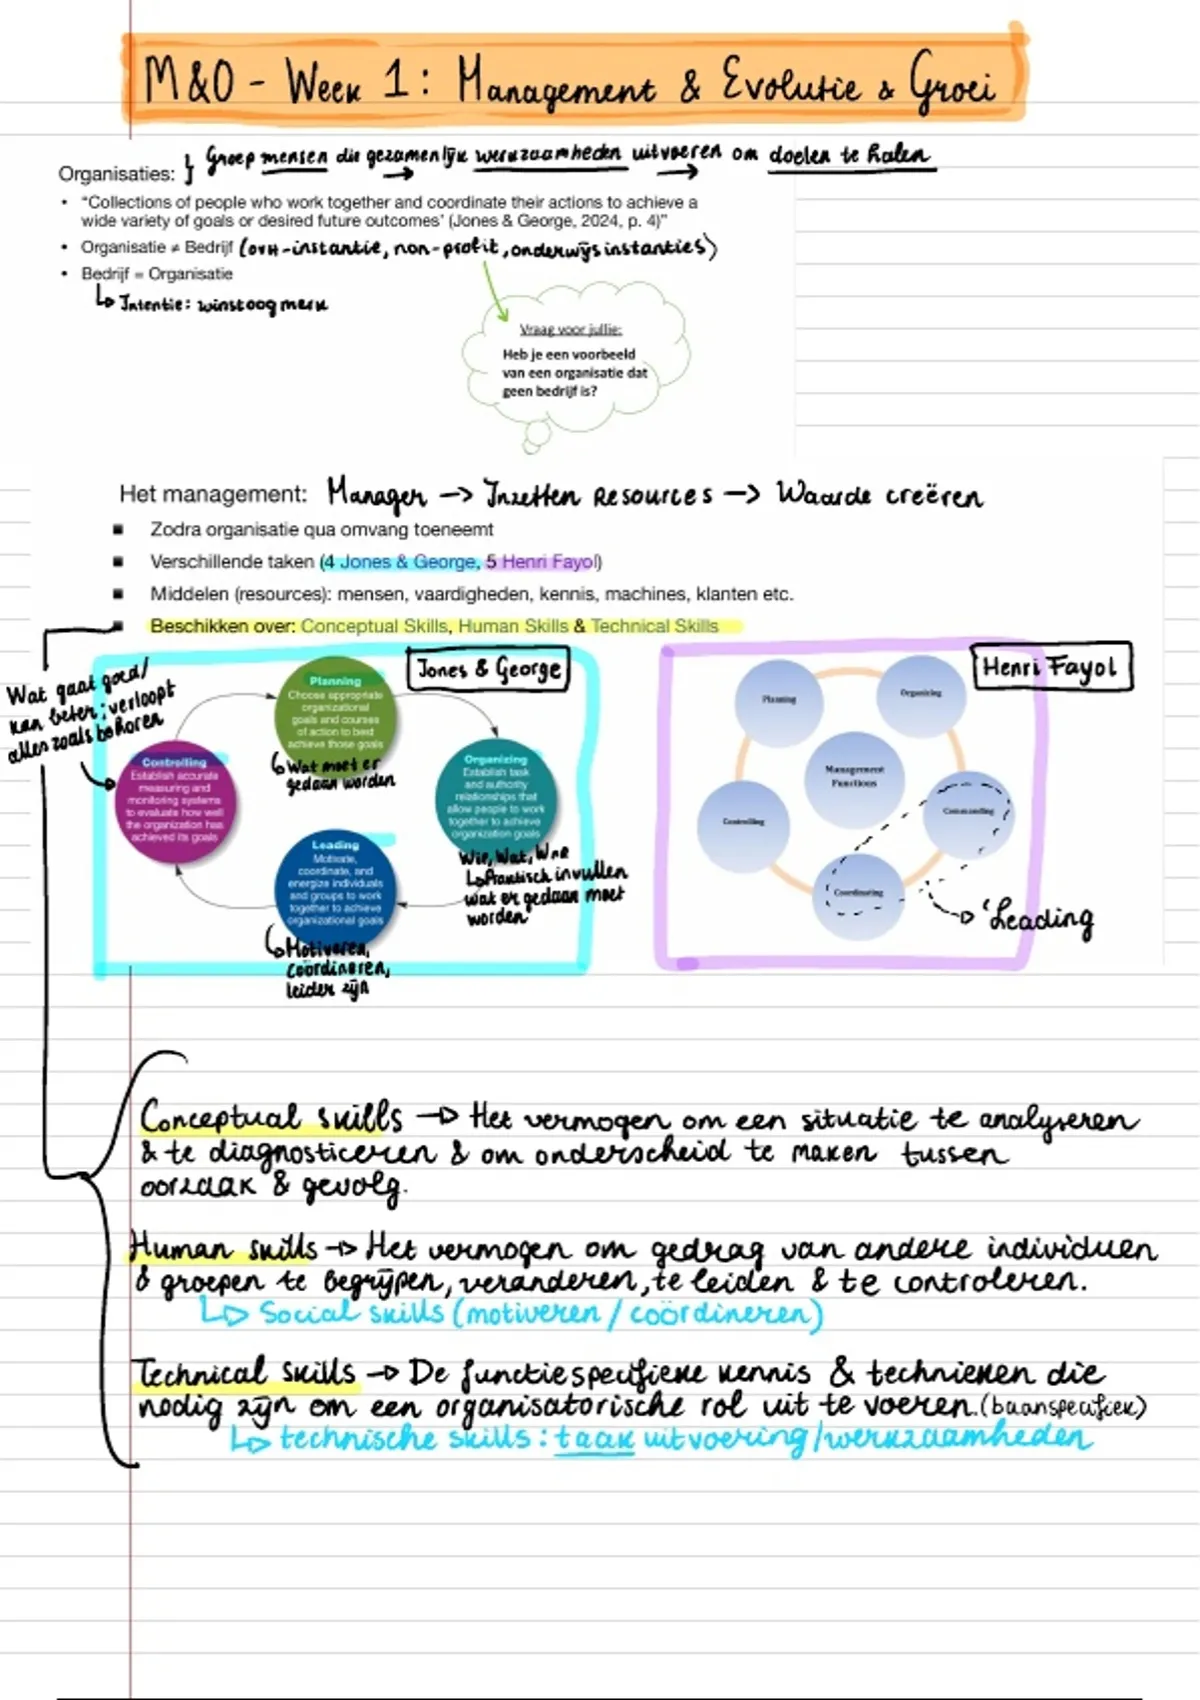 M&O - Week 1: Management & Evolutie & Groei
Organisaties: } Groep mensen die gezamenlijk werkzaamheden uitvoeren om doelen te halen
• "Collections of people who work together and coordinate their actions to achieve a
wide variety of goals or desired future outcomes' (Jones & George, 2024, p. 4)"
• Organisatie ≠ Bedrijf (ovh-instantie, non-profit, onderwijsinstanties)
• Bedrijf = Organisatie
↳ Intentie: winstoogmerk
Vraag voor jullie:
Heb je een voorbeeld
van een organisatie dat
geen bedrijf is?
Het management: Manager → Inzetten Resources → Waarde creëren
▪ Zodra organisatie qua omvang toeneemt
▪ Verschillende taken (4 Jones & George, 5 Henri Fayol)
▪ Middelen (resources): mensen, vaardigheden, kennis, machines, klanten etc.
▪ Beschikken over: Conceptual Skills, Human Skills & Technical Skills
Wat gaat goed/
kan beter; verloopt
alles zoals behoren
Jones & George
Planning
Choose appropriate
organizational
goals and courses
of action to best
achieve those goals
↳ Wat moet er
gedaan worden
Organizing
Establish task
and authority
relationships that
allow people to work
together to achieve
organization goals
Wie, Wat, Wie
↳ Praktisch invullen
wat er gedaan moet
worden
Leading
Motivate,
coordinate, and
energize individuals
and groups to work
together to achieve
organizational goals
↳ Motiveren,
coördineren,
leider zijn
Controlling
Establish accurate
measuring and
monitoring systems
to evaluate how well
the organization has
achieved its goals
Henri Fayol
Planning
Organizing
Management
Functions
Commanding
Controlling
Coordinating
→ 'Leading
Conceptual skills → Het vermogen om een situatie te analyseren
& te diagnosticeren & om onderscheid te maken tussen
oorzaak & gevolg.
Human skills → Het vermogen om gedrag van andere individuen
& groepen te begrijpen, veranderen, te leiden & te controleren.
↳ Social skills (motiveren / coördineren)
Technical skills → De functiespecifieke kennis & technieken die
nodig zijn om een organisatorische rol uit te voeren. (baanspecifiek)
↳ technische skills: taak uitvoering/werkzaamheden